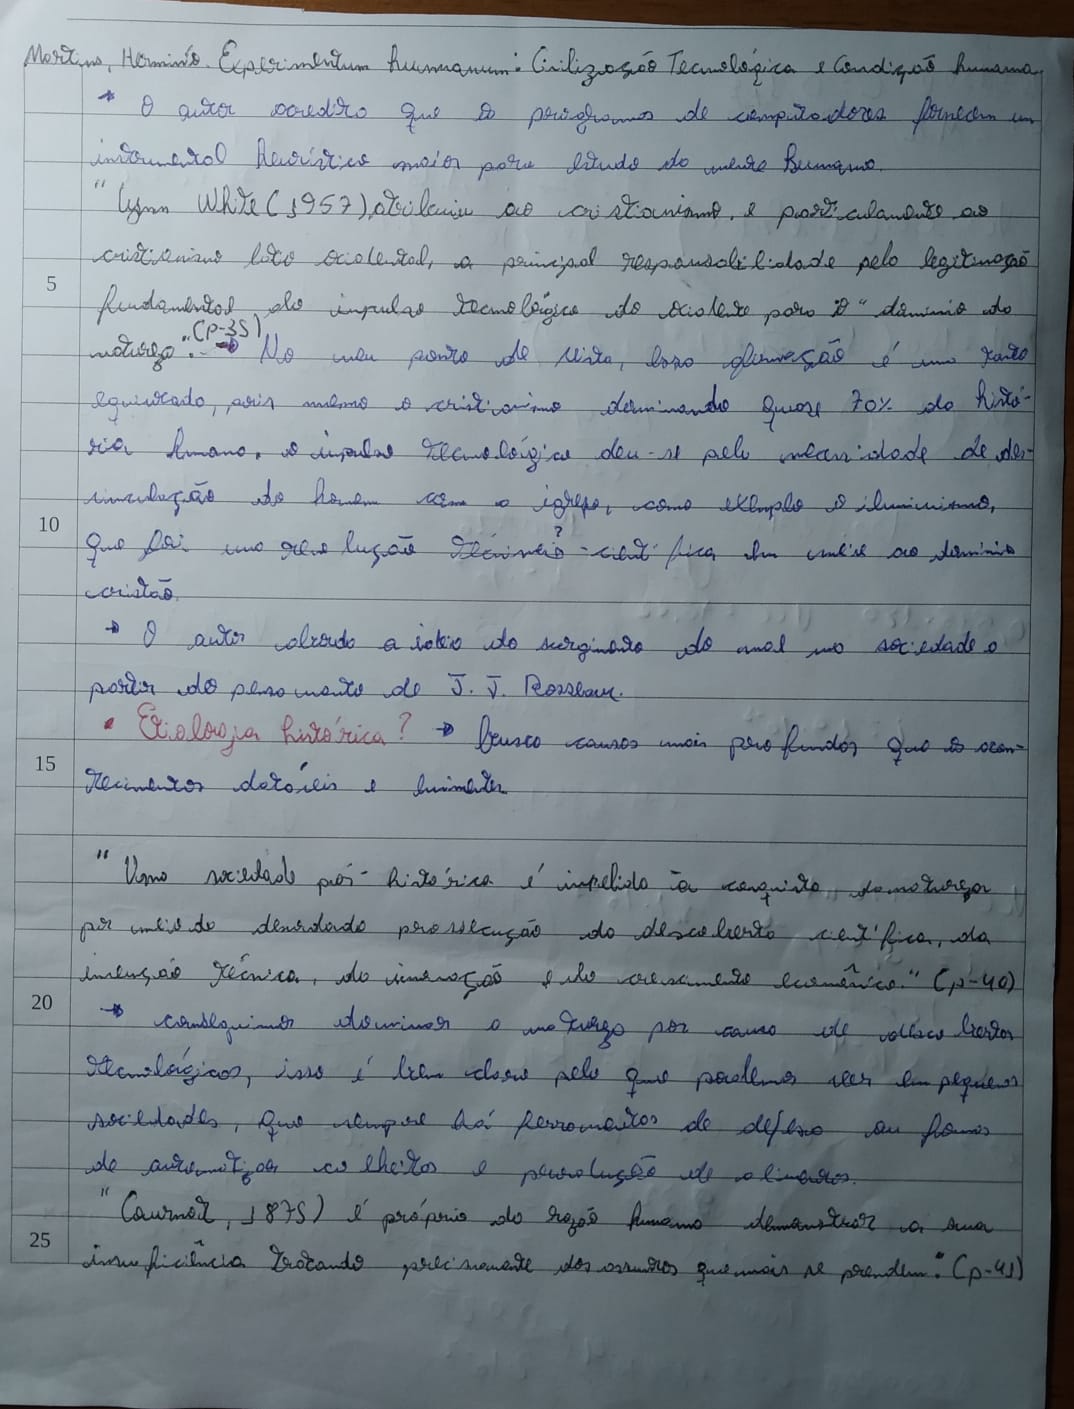 Martins, Hermínio. Experimentum humanum: Civilização Tecnológica e Condição humana.
→ O autor acredita que os programas de computadores fornecem um
instrumental heurístico maior para estudo da mente humana.
"Lynn White (1957), atribuiu ao cristianismo, e particularmente ao
cristianismo lato ocidental, a principal responsabilidade pela legitimação
5
fundamental do impulso tecnológico do ocidente para o "domínio da
natureza". (p-35) → No meu ponto de vista, essa afirmação é um tanto
equivocada, pois mesmo o cristianismo dominando quase 70% da histó-
ria humana, o impulso tecnológico deu-se pela necessidade de des-
vinculação do homem com a igreja, como exemplo o iluminismo,
10
que foi uma revolução ?-científica em meio ao domínio
cristão.
→ O autor aborda a ideia do surgimento do mal na sociedade a
partir do pensamento de J. J. Rosseau.
• Etiologia histórica? → busca causas mais profundas que os acon-
15
tecimentos datáveis e
"Uma sociedade pós-histórica é impelida à conquista da natureza
por meio da desvairada prossecução da descoberta científica, da
invenção técnica, da inovação e do crescimento econômico." (p-40)
20
→ conseguimos dominar a natureza por causa de descobertas
tecnológicas, isso é bem claro pelo que podemos ver em pequenas
sociedades, que sempre há ferramentas de defesa ou formas
de automatizar colheitas e produção de alimentos.
"(Cournot, 1875) é próprio da razão humana demonstrar a sua
25
insuficiência tratando precisamente dos assuntos que mais se prendem." (p-41)